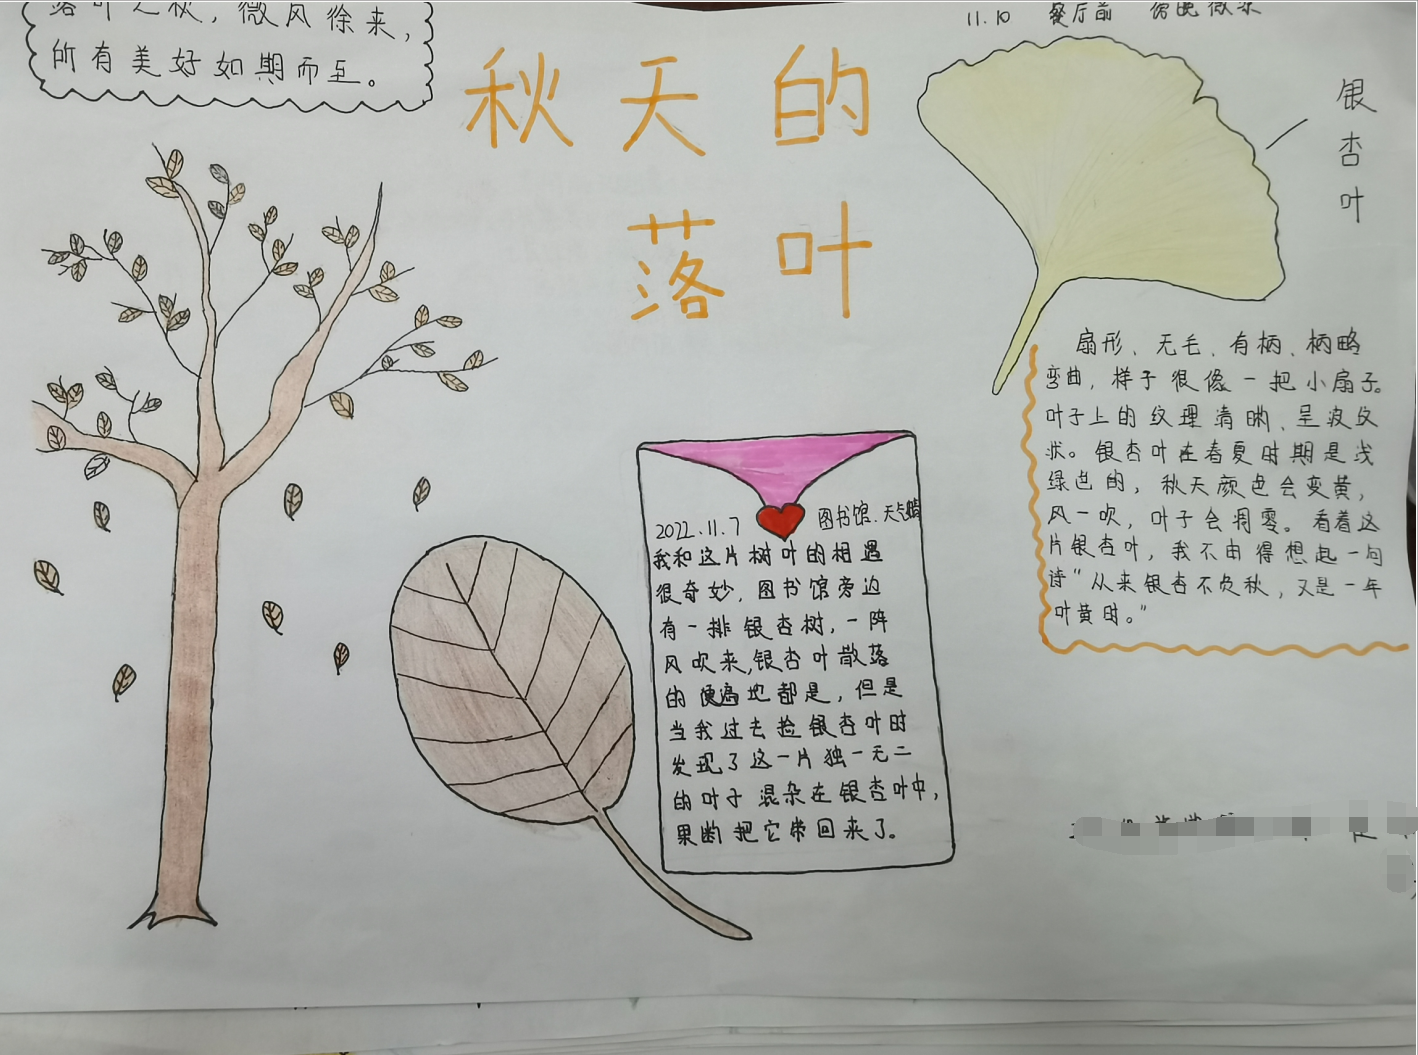 落叶之秋，微风徐来，
所有美好如期而至。
秋天的
落叶
11.10 餐厅前 傍晚微凉
银
杏
叶
扇形、无毛、有柄、柄略
弯曲，样子很像一把小扇子。
叶子上的纹理清晰、呈波纹
状。银杏叶在春夏时期是浅
绿色的，秋天颜色会变黄，
风一吹，叶子会凋零。看着这
片银杏叶，我不由得想起一句
诗"从来银杏不负秋，又是一年
叶黄时。"
2022.11.7 图书馆.天气晴
我和这片树叶的相遇
很奇妙，图书馆旁边
有一排银杏树，一阵
风吹来,银杏叶散落
的便遍地都是，但是
当我过去捡银杏叶时
发现了这一片独一无二
的叶子混杂在银杏叶中，
果断把它带回来了。